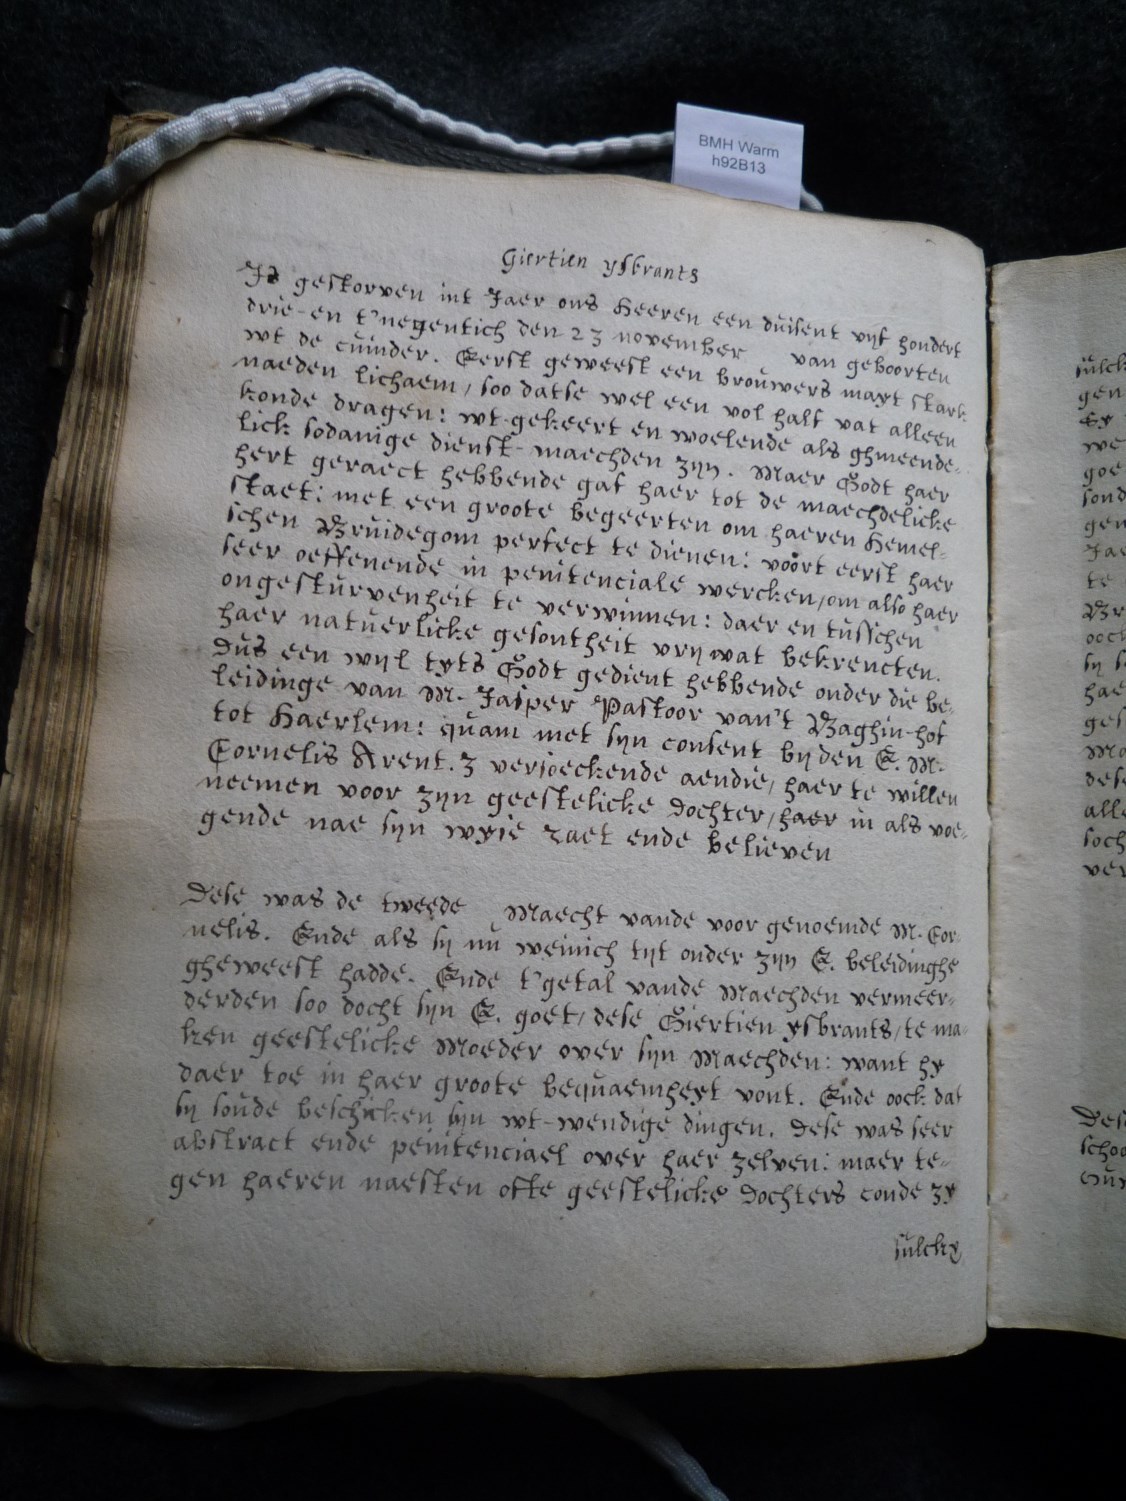 BMH Warm
h92B13
Giertien ysbrants
Is gestorven int Jaer ons Heeren een duisent vijf hondert
drie-en t'negentich den 23 november van geboorten
wt de cuinder. Eerst geweest een brouwers mayt stark
naeden lichaem, soo datse wel een vol half vat alleen
konde dragen: wt-gekeert en woelende als ghmeende-
lick sodanige dienst-maechden zijn. Maer Godt haer
hert geraect hebbende gaf haer tot de maechdelicke
staet: met een groote begeerten om haeren hemel-
schen Bruidegom perfect te dienen: voort eerst haer
seer oeffenende in penitenciale wercken, om also haer
ongesturvenheit te verwinnen: daer en tusschen
haer natuerlicke gesontheit vrij wat bekrencten.
Dus een wijl tyts Godt gedient hebbende onder die be-
leidinge van M. Jasper Pastoor van't Baghin-hof
tot Haerlem: quam met sijn consent bij den E. M.
Cornelis Arent. z versoeckende aendie, haer te willen
neemen voor zijn geestelicke dochter, haer in als voe-
gende nae sijn wyse raet ende believen
Dese was de tweede Maecht vande voor genoemde M. Cor-
nelis. Ende als sij nu weinich tijt onder zijn E. beleidinghe
gheweest hadde. Ende t'getal vande Maechden vermeer-
derden soo docht sijn E. goet, dese Giertien ysbrants, te ma-
ken geestelicke Moeder over sijn Maechden: want hy
daer toe in haer groote bequaemheyt vont. Ende oock dat
sij soude beschicken sijn wt-wendige dingen. Dese was seer
abstract ende penitenciael over haer zelven: maer te-
gen haeren naesten ofte geestelicke dochters conde zy
sulcke